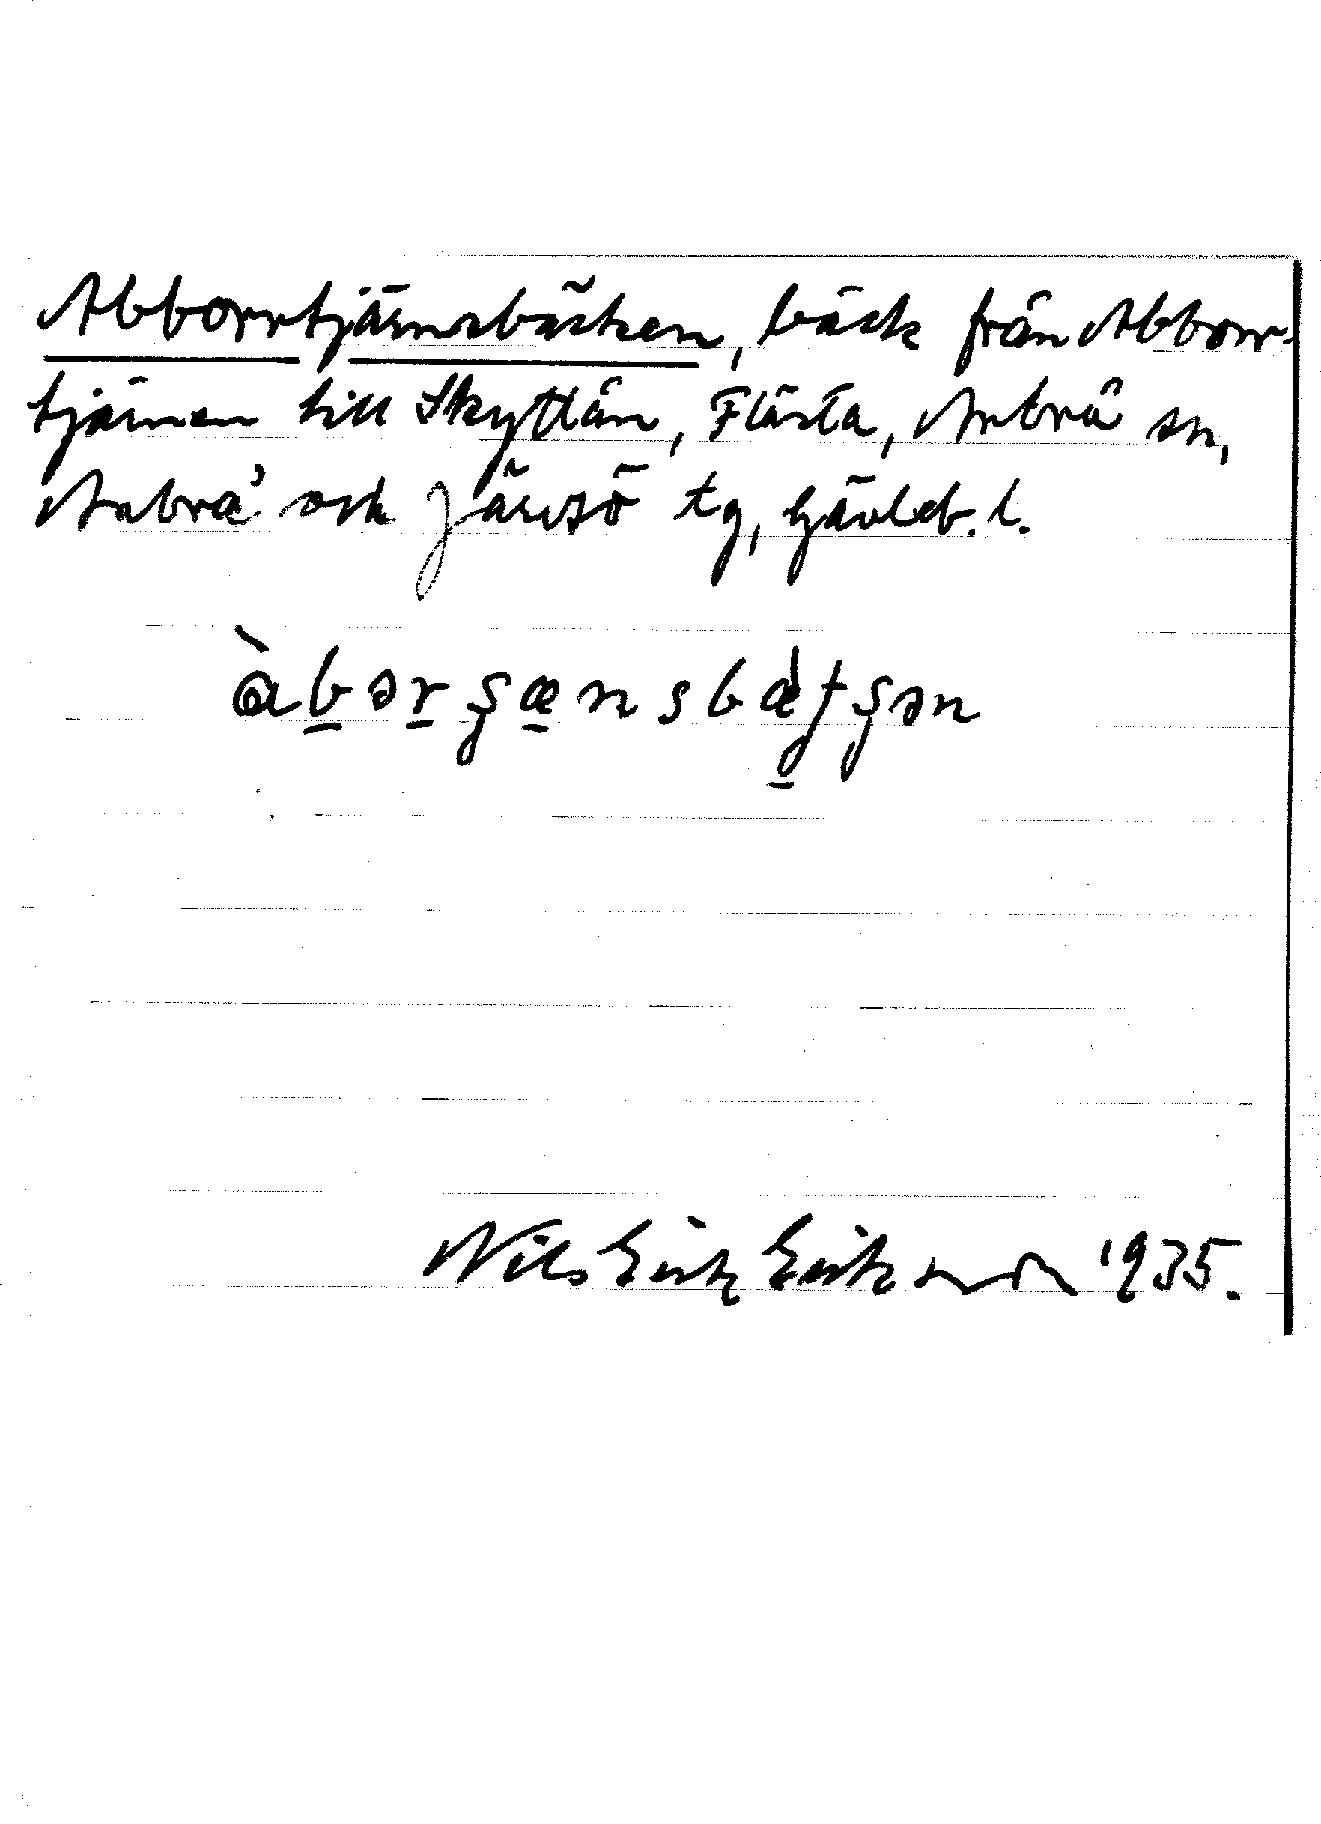 Abborrtjärnsbäcken, bäck från Abborr-
tjärnen till Skyttån, Flästa, Arbrå sn,
Arbrå och Järvsö tg, Gävleb. l.
àbərşænsbætşən
Nils Erik Eriksson 1935.